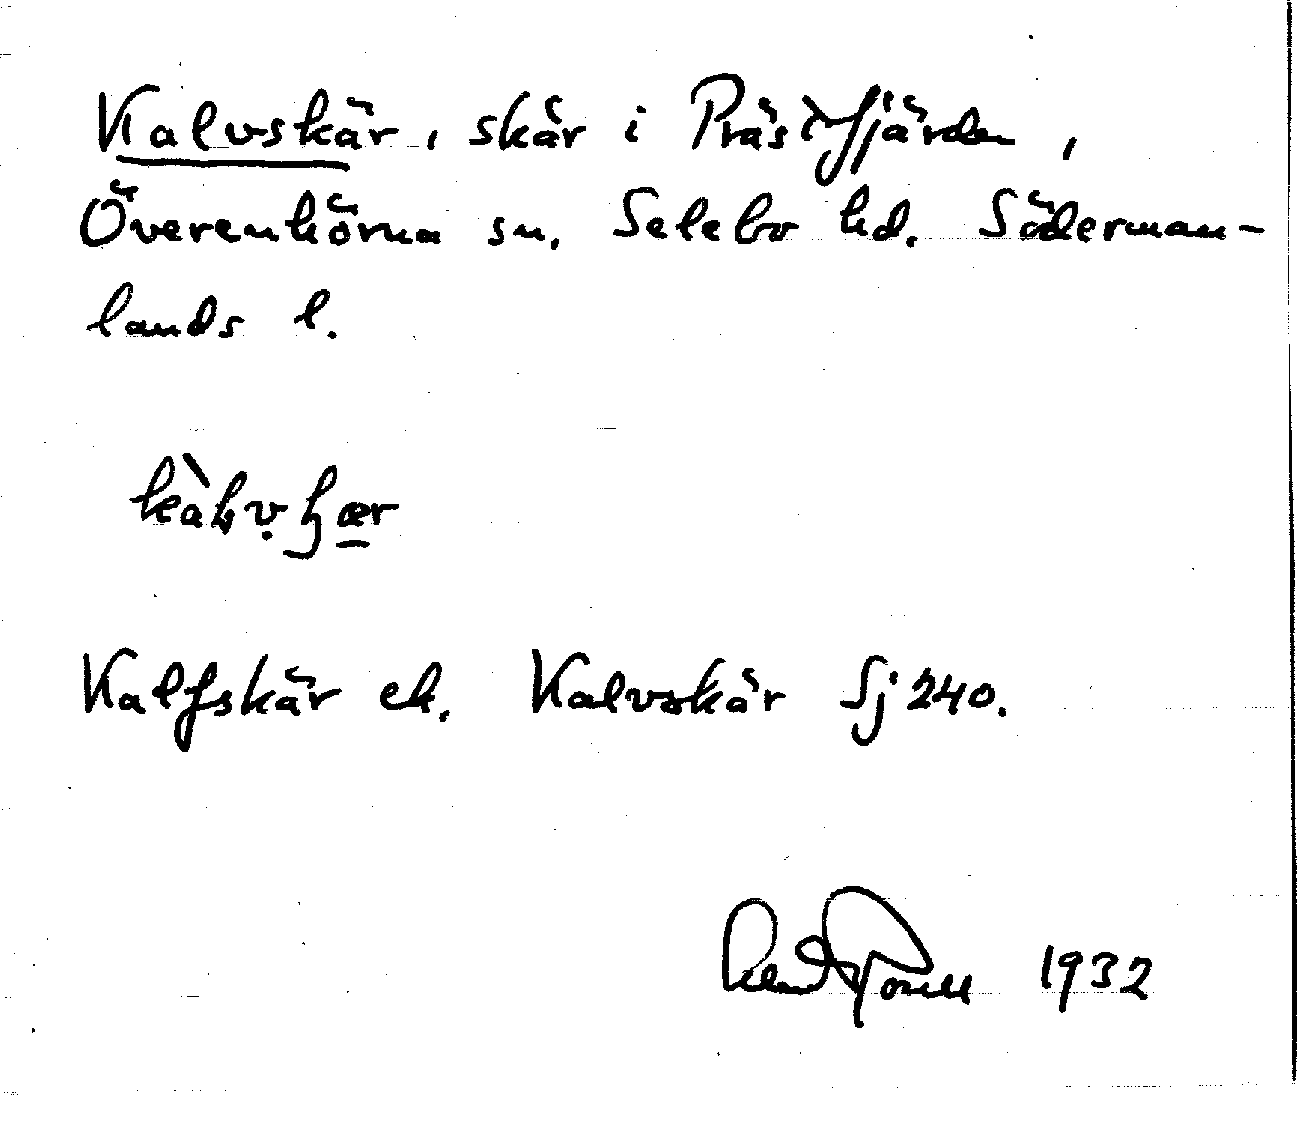 Kalvskär, skär i Prästfjärden,
Överenhörna sn, Selebo hd. Söderman-
lands l.
Kalfskär ek. Kalvskär Sj 240.
1932